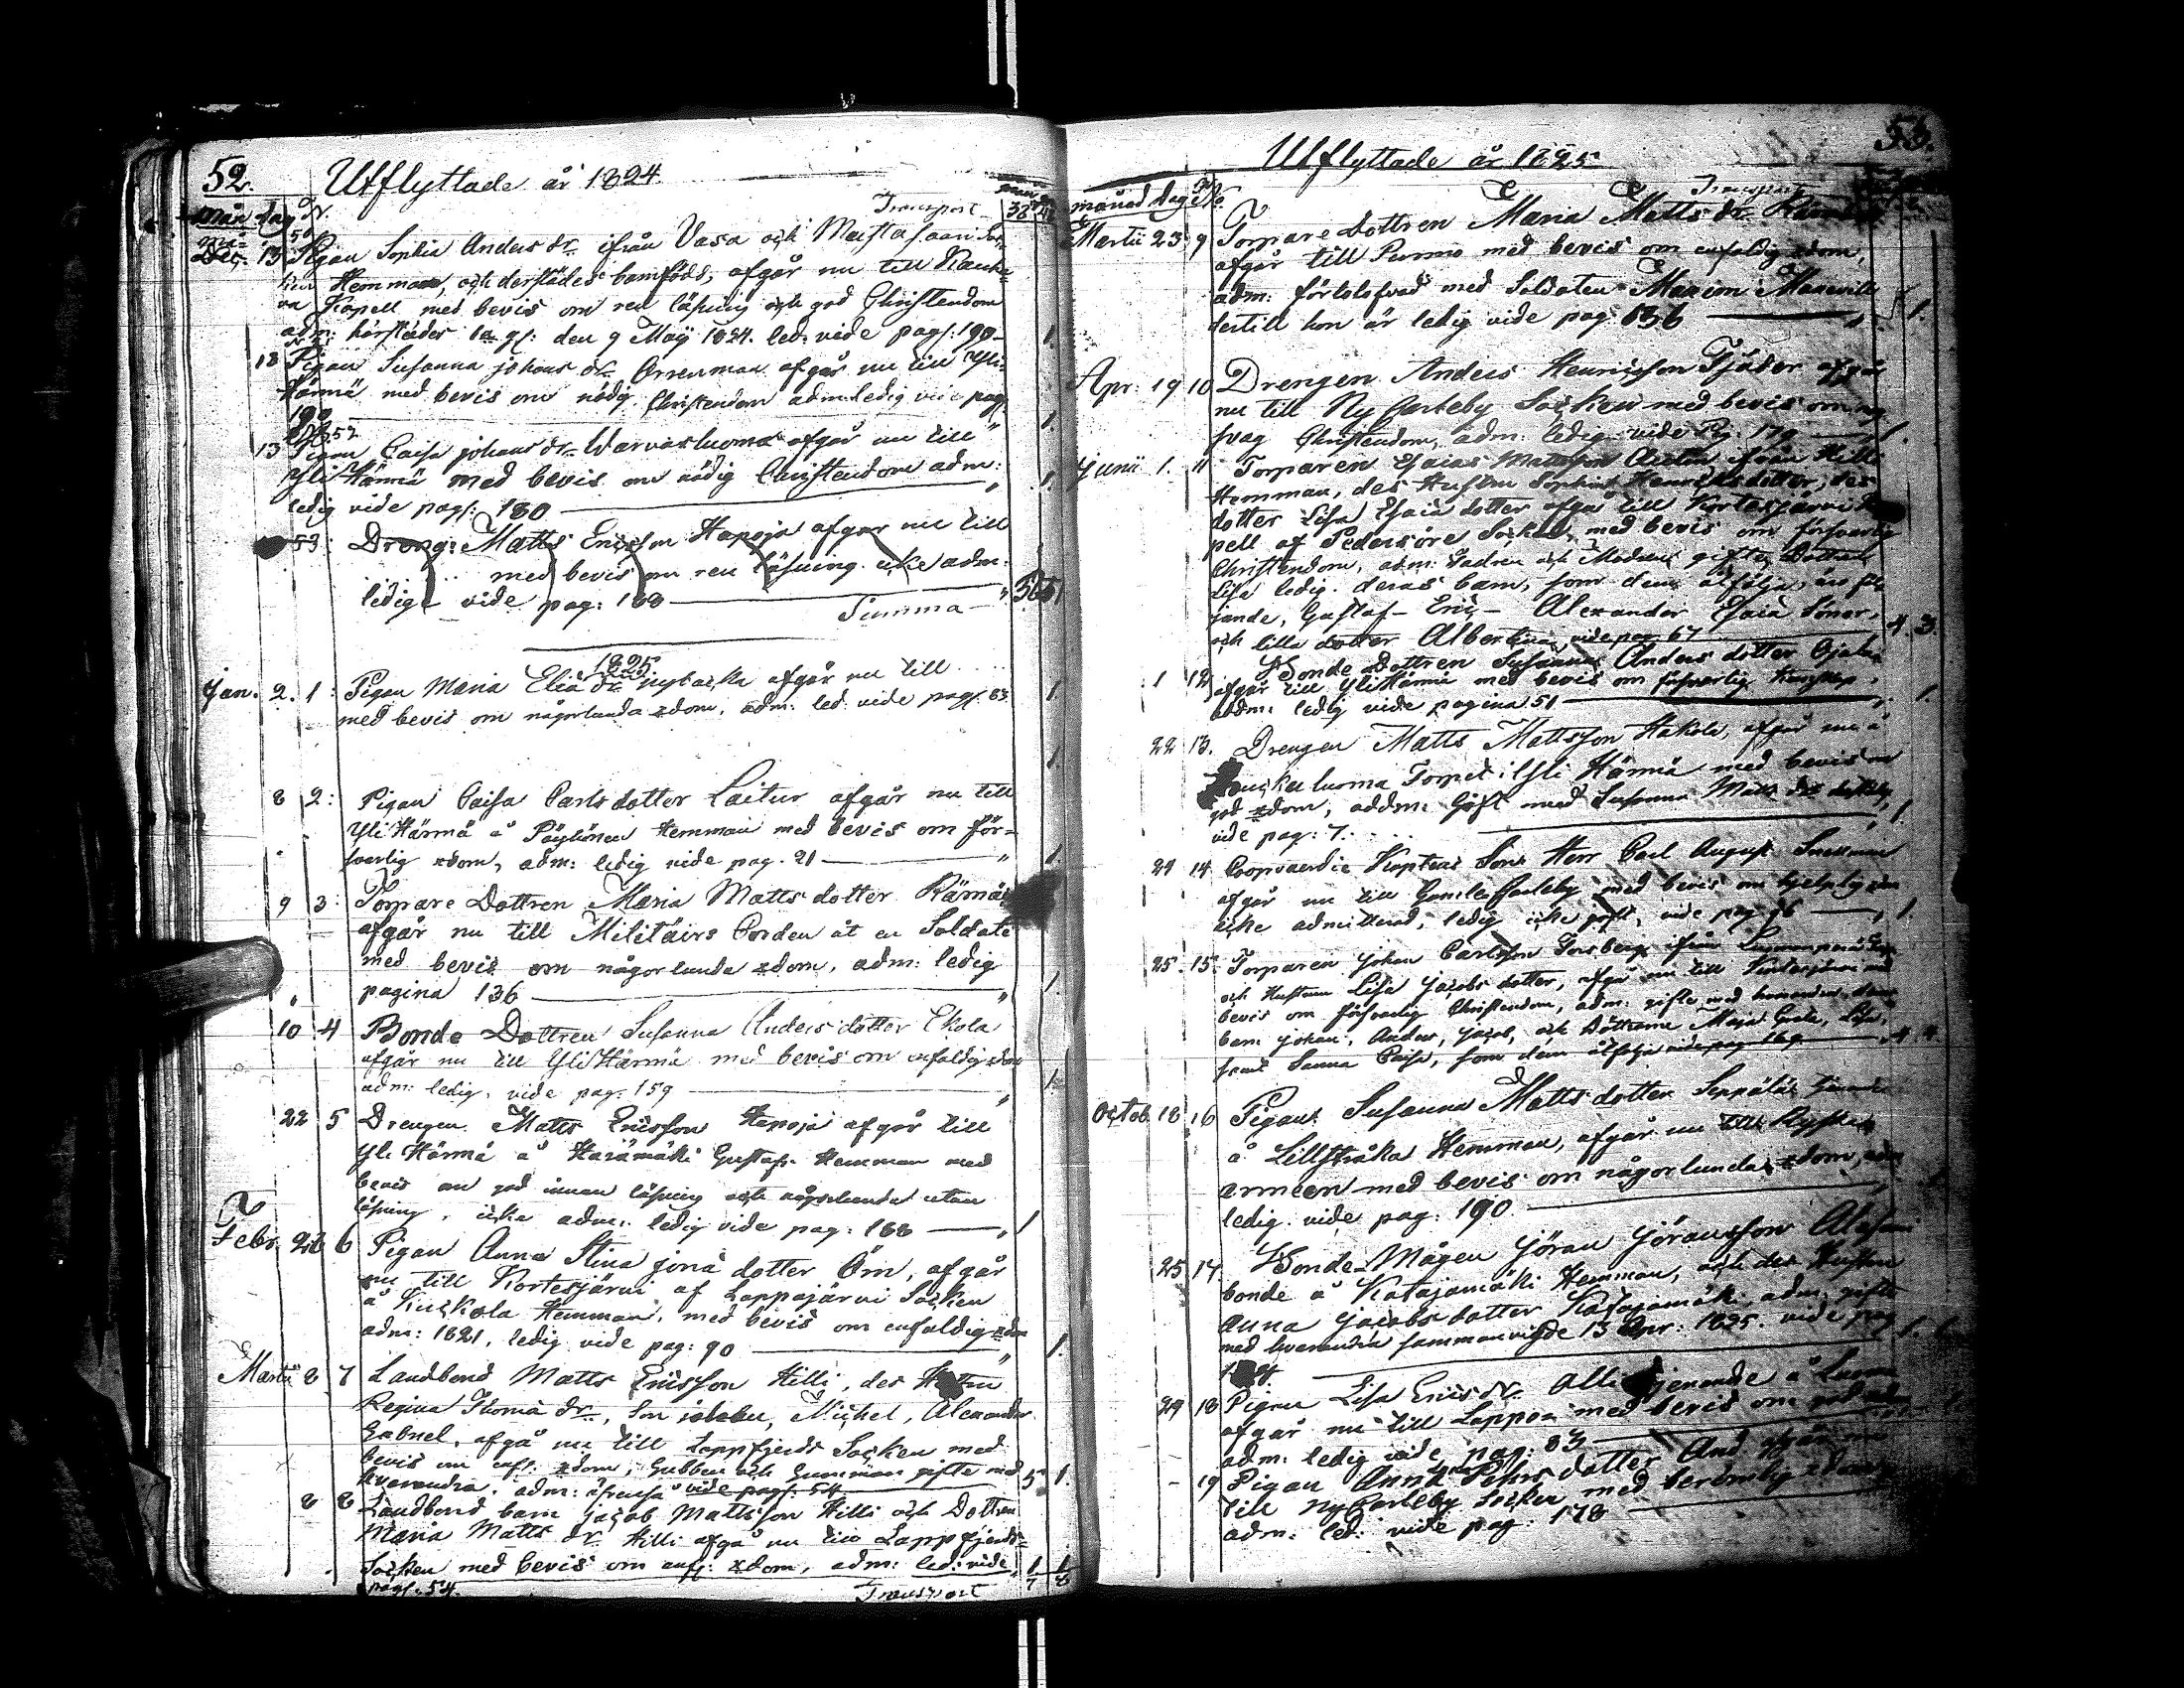 52.
Utflyttade år 1824.
Transport
Mån dag N.
Dec. 13 Pigan Sophia Anders dr. ifrån Vasa och
Hemman, och derstädes barnfödd, afgår nu till
Kapell med bevis om ren läsning och god Christendom
adm: härstädes 1a g: den 9 Maij 1824. led. vide pag: 190 1.
18 Pigan Susanna Johans dr. afgår nu till Yli
Härmä med bevis om nödig Christendom adm: ledig vide pag
190 1.
52
13 Pigan Caisa Johans dr. Warvasluoma afgår nu till
Yli Härmä med bevis om nödig Christendom adm:
ledig vide pag: 180 1.
53: Dreng: Matts Ericsson Hapoja afgår nu till
med bevis om ren läsning icke adm:
ledig vide pag: 188
Summa
1825.
Jan. 2. 1: Pigan Maria Eliæ dr. Nybacka afgår nu till
med bevis om någorlunda xdom. adm: led. vide pag. 83 1.
8 2: Pigan Caisa Carls dotter Laitur afgår nu till
Yli Härmä å Pöyhönen Hemman med bevis om för-
svarlig xdom, adm: ledig vide pag. 21 1.
9 3: Torpare Dottren Maria Matts dotter
afgår nu till Militairs Corden åt en Soldate
med bevis om någorlunda xdom, adm: ledig
pagina 136 1.
10 4 Bonde Dottren Susanna Anders dotter Ekola
afgår nu till Yli Härmä med bevis om enfaldig xdom
adm: ledig. vide pag: 159 1.
22 5 Drengen Matts Ericsson Hapoja afgår till
Yli Härmä å Gustafs Hemman med
bevis om god innan läsning och någorlunda utan
läsning, icke adm: ledig vide pag: 188 1
Febr. 26 6 Pigan Anna Stina Jona dotter Örn, afgår
nu till Kortesjärvi af Lappajärvi Socken
å Kuckola Hemman, med bevis om enfaldig xdom
adm: 1821. ledig vide pag: 90 1.
Martii 8 7 Landbond Matts Ericsson Hilli, des
Regina Thomæ dr., Son Michel, Alexander
Gabriel, afgå nu till Lappfjerds Socken med
bevis om enf. xdom, Gubben och Gumman gifte med
hvarandra. adm: vide pag: 54 5 1.
8 8 Landbond barn Jacob Mattsson Hilli och Dottren
Maria Matts dr. Hilli afgå nu till Lappfjerds
Socken med bevis om enf: xdom, adm: led: vide 1 1
pag. 54.
Transport 7 8
53.
Utflyttade år 1825
Transport
månad dag No.
Martii 23 9 Torpare dottren Maria Matts dr.
afgår till Purmo med bevis om enfaldig xdom,
adm: förlofvad med Soldaten
dertill hon är ledig vide pag: 136 1.
Apr: 19 10 Drengen Anders Henricsson Tjäder afgår
nu till Ny Carleby Socken med bevis om
svag Christendom, adm: ledig vide Pag: 179 1.
Junii 1. 11 Torparen Esaias Mattsson ifrån Hilli
Hemman, des Hustru Sophia Henricsdotter, des
dotter Lisa Esaiæ dotter afgå till Kortesjärvi Ka
pell af Pedersöre Socken, med bevis om försvarlig
Christendom, adm: Fadren och Modren gifte, Dottren
Lisa ledig. deras barn, som dem åtfölja, äro föl
jande, Gustaf- Eric- Alexander Esaiæ Söner,
och lilla dotter Albertina, vide pag. 67 4. 3.
1 12 Bonde Dottren Susanna Anders dotter
afgår till Yli Härmä med bevis om försvarlig
adm: ledig vide pagina 51 1.
22 13. Drengen Matts Mattsson Hakola, afgår nu å
Torpet i Yli Härmä med bevis om
god xdom, adm: Gift med Susanna Matts dr.
vide pag: 7. 1.
24 14 Coopvaerdie Kaptens Son Herr Carl August Snellman
afgår nu till Gamla Carleby med bevis om hjelplig xdom
icke admitterad, ledig icke gift, vide pag 96 1.
25. 15 Torparen Johan Carlsson Forsberg ifrån
och Hustrun Lisa Jacobs dotter, afgår nu till Kortesjärvi med
bevis om försvarlig Christendom, adm: gifte med hvarandra, deras
barn Johan, Anders, Jacob, och Döttrarna Maja Greta, Lisa,
samt Sanna Caisa, som dem åtfölja vide pag 169 4. 4.
Octob. 18 16 Pigan Susanna Matts dotter Seppälä tjenande
å Lillstråka Hemman, afgår nu till Ryska
armeen med bevis om någorlunda xdom, adm
ledig. vide pag: 190
25 17. Bonde Mågen Jöran Jöransson
bonde å Katajamäki Hemman, och des Hustru
Anna Jacobs dotter Katajamäki, adm: gifte
med hvarandra sammanvigde 13 Apr: 1825. vide pag 1. 1.
29 18 Pigan Lisa Erics dr. tjenande å
afgår nu till Lappo med bevis om god xdom
adm: ledig vide pag: 83
- 19 Pigan Anna Pehrs dotter And afgår nu
till Ny Carleby Socken med berömlig xdom
adm: led: vide pag: 178